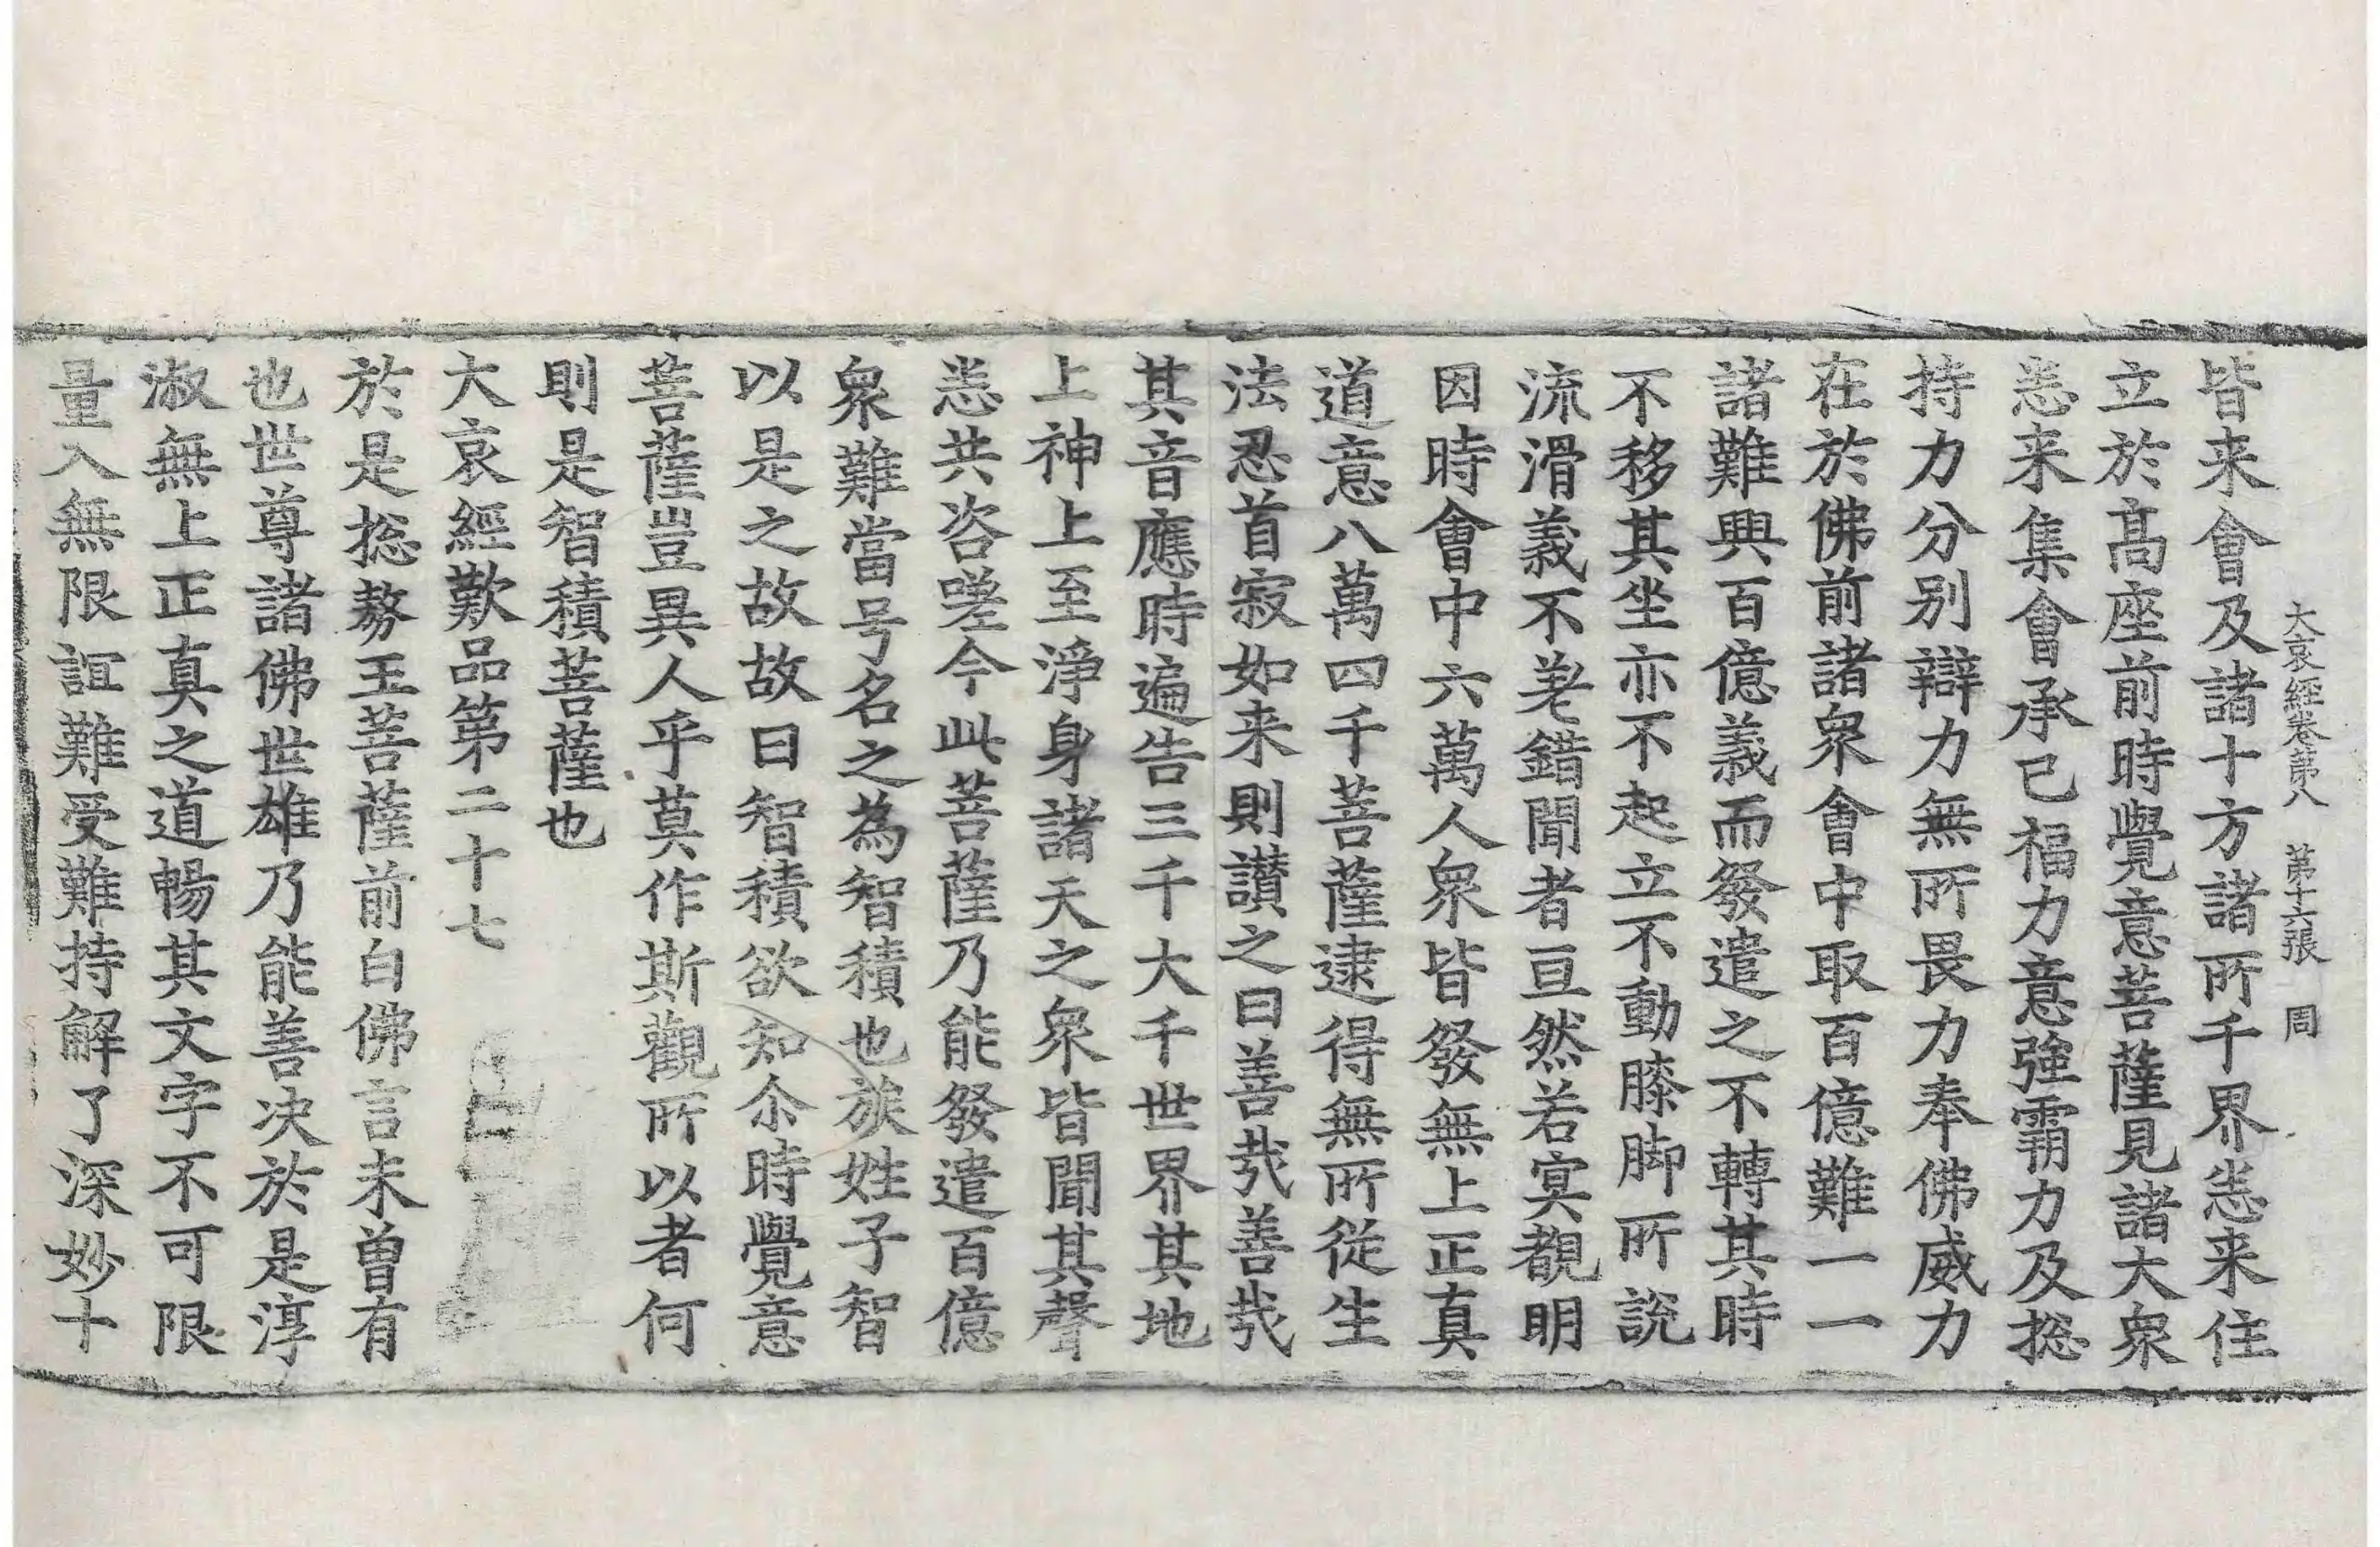 大哀經卷第八　第十六張　周
皆来會及諸十方諸所千界悉来住
立於髙座前時覺意菩薩見諸大衆
悉来集會承已福力意強霸力及捴
持力分別辯力無所畏力奉佛威力
在於佛前諸衆會中取百億難一一
諸難興百億義而發遣之不轉其時
不移其坐亦不起立不動膝脚所說
流滑義不差錯聞者亘然若冥覩明
因時會中六萬人衆皆發無上正真
道意八萬四千菩薩逮得無所從生
法忍首寂如来則讃之曰善㢤善㢤
其音應時遍告三千大千世界其地
上神上至淨身諸天之衆皆聞其聲
悉共咨嗟今此菩薩乃能發遣百億
衆難當号名之為智積也族姓子智
以是之故故曰智積欲知尒時覺意
菩薩豈異人乎莫作斯觀所以者何
則是智積菩薩也
大哀經歎品第二十七
於是捴勑王菩薩前白佛言未曽有
也世尊諸佛世雄乃能善决於是淳
淑無上正真之道暢其文字不可限
量入無限誼難受難持解了深妙十